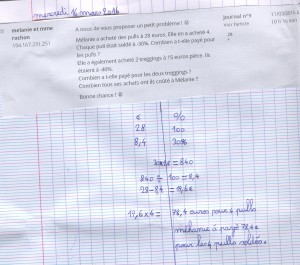 mercredi 16 mars 2016
mélanie et mme rochon
194.167.231.251
A nous de vous proposer un petit problème !
Mélanie a acheté des pulls à 28 euros. Elle en a acheté 4.
Chaque pull était soldé à -30%. Combien a t-elle payé pour
les pulls ?
Elle a également acheté 2 treggings à 15 euros pièce. Ils
étaient à -40%.
Combien a t-elle payé pour les deux treggings ?
Combien tous ses achats ont ils coûté à Mélanie ?
Bonne chance !
journal n°9
Voir l'article
28
11/03/2016
10 h 16 min
€ %
28 100
8,4 30%
30x28 = 840
840 ÷ 100 = 8,4
28-84 = 19,6€
19,6x4 = 78,4 euros pour 4 pulls
mélanie à payé 78,4€
pour les 4 pulls soldés.